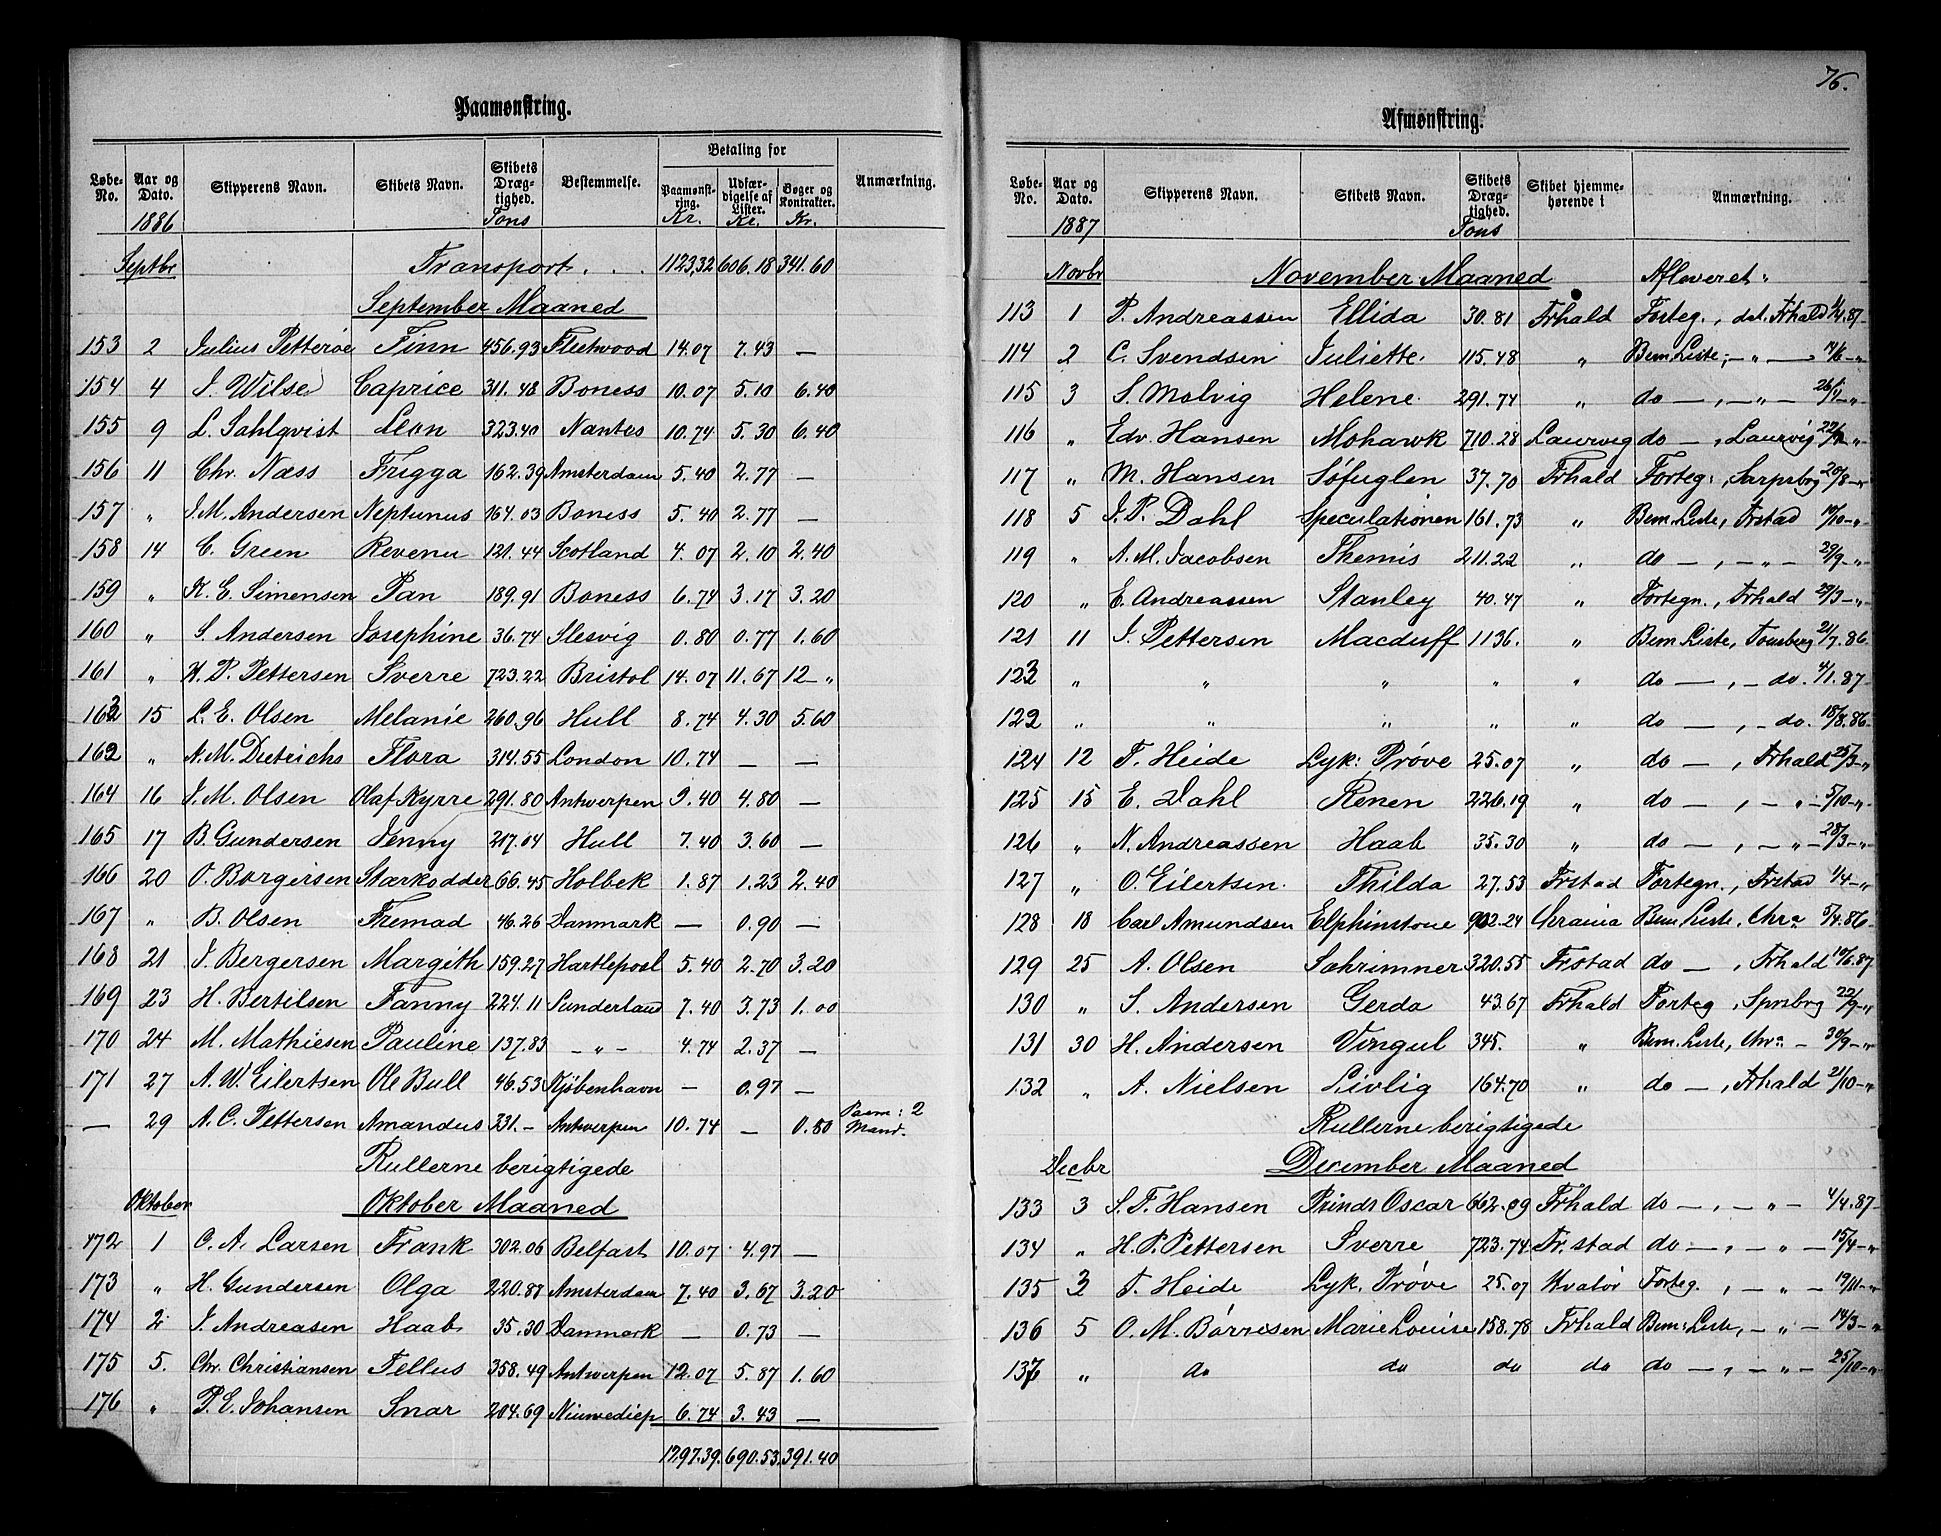 Paamønstring.
Løbe-No. Aar og Dato. Skipperens Navn. Skibets Navn. Skibets Dræg-tighed. Bestemmelse. Betaling for Paamønst-ring. Udfær-digelse af Lister. Bøger og Kontrakter. Anmærkning.
1886 Tons Kr. Kr. Kr.
Septbr Transport . . . 1123,32 606.18 341.60
September Maaned
153 2 Julius Petterøe Finn 456.93 Fleetwood 14.07 7.43 —
154 4 J. Wilse Caprice 311.48 Boness 10.07 5.10 6.40
155 9 L. Sahlqvist Leon 323.40 Nantes 10.74 5.30 6.40
156 11 Chr. Næss Frigga 162.39 Amsterdam 5.40 2.77 —
157 " J. M. Andersen Neptunus 164.03 Boness 5.40 2.77 —
158 14 C. Green Revenu 121.44 Scotland 4.07 2.10 2.40
159 " K. E. Simensen Pan 189.91 Boness 6.74 3.17 3.20
160 " S. Andersen Josephine 36.74 Slesvig 0.80 0.77 1.60
161 " H. P. Pettersen Sverre 723.22 Bristol 14.07 11.67 12 — "
163 15 L. E. Olsen Melanie 260.96 Hull 8.74 4.30 5.60
162 " N. M. Dietrichs Flora 314.55 London 10.74 — —
164 16 J. M. Olsen Olaf Kyrre 291.80 Antwerpen 9.40 4.80 —
165 17 B. Gundersen Jenny 217.04 Hull 7.40 3.60 —
166 20 O. Borgersen Stærkodder 66.45 Holbek 1.87 1.23 2.40
167 " B. Olsen Fremad 46.26 Danmark — 0.90 —
168 21 J. Bergersen Margith 159.27 Hartlepool 5.40 2.70 3.20
169 23 H. Bertilsen Fanny 224.11 Sunderland 7.40 3.73 1.00
170 24 M. Mathiesen Pauline 137.83 - " - 4.74 2.37 —
171 27 A. W. Eilertsen Ole Bull 46.53 Kjøbenhavn — 0.97 —
— 29 A. C. Pettersen Amandus 331.- Antwerpen 10.74 — 0.80 Paam: 2 Mand.
Rullerne berigtigede
Oktober Oktober Maaned
172 1 C. A. Larsen Frank 302.06 Belfast 10.07 4.97 —
173 " H. Gundersen Olga 220.87 Amsterdam 7.40 3.67 3.20
174 2 J. Andreasen Haab 35.30 Danmark — 0.73 —
175 5. Chr. Christiansen Tellus 358.49 Antwerpen 12.07 5.87 1.60
176 " P. E. Johansen Snar 204.69 Niuwediep 6.74 3.43 —
1297.39. 690.53. 391.40
76.
Afmønstring.
Løbe-No. Aar og Dato. Skipperens Navn. Skibets Navn. Skibets Dræg-tighed. Skibet hjemme-hørende i Anmærkning.
1887 Tons
Novbr November Maaned Afleveret:
113 1 P. Andreassen Ellida 30.81 Frhald Forteg., dat. Frhald 87
114 2 C. Svendsen Juliette 115.48 " Bem. Liste, — " — 14/6 - "
115 3 S. Molvig Helene 291.74 " do — , — " — "
116 " Edv. Hansen Mohawk 710.28 Laurvig do — , Laurvig "
117 " M. Hansen Søfuglen 37.70 Frhald Forteg:, Sarpsbrg 20/8 - "
118 5 J. P. Dahl Speculationen 161.73 " Bem. Liste, Frstad 19/10 - "
119 " A. M. Jacobsen Themis 211.22 " do — , — " — 29/9 - "
120 " E. Andreassen Stanley 40.47 " Fortegn., Frhald 29/3 - "
121 11 J. Pettersen Macduff 1136. " Bem. Liste, Tønsberg 21/7. 86
123 " " " " " do — , - do. 4/1. 87
122 " " " " " do — , - do. 18/8. 86
124 12 T. Heide Lyk: Prøve 25.07 " do — , Frhald 25/3 - "
125 15 E. Dahl Renen 226.19 " do — , — " - 5/10 - "
126 " N. Andreassen Haab 35.30 " do — , — " - 28/3 - "
127 " O. Eilertsen. Thilda 27.53 Frstad Fortegn., Frstad 1/4 - "
128 18 Carl Amundsen Elphinstone 902.24 Chrania Bem. Liste, Chra 5/4. 86
129 25 A. Olsen Sæhrimner 320.55 Frstad do — , Frhald 10/6. 87
130 " S. Andersen Gerda 43.67 Frhald Forteg, Sprsbrg 22/9 - "
131 30 H. Andersen Vingul 345. " Bem. Liste, Chra - 30/9 - "
132 " A. Nielsen Livlig 164.70 " do — , Frhald 21/10 - "
Rullerne berigtigede
Decbr December Maaned
133 3 S. F. Hansen Prinds Oscar 662.09 Frhald do — , - " - 4/4. 87
134 " H. P. Pettersen Sverre 723.74 Fr.stad do — , - " - 15/4 - "
135 3 T. Heide Lyk. Prøve 25.07 Hvalør Forteg. , - " - 19/11 - "
136 5 O. M. Børresen Marie Louise 158.78 Frhald Bem: Liste, - " - 14/3 - "
137 " do do do do do — , - " - 25/10 - "